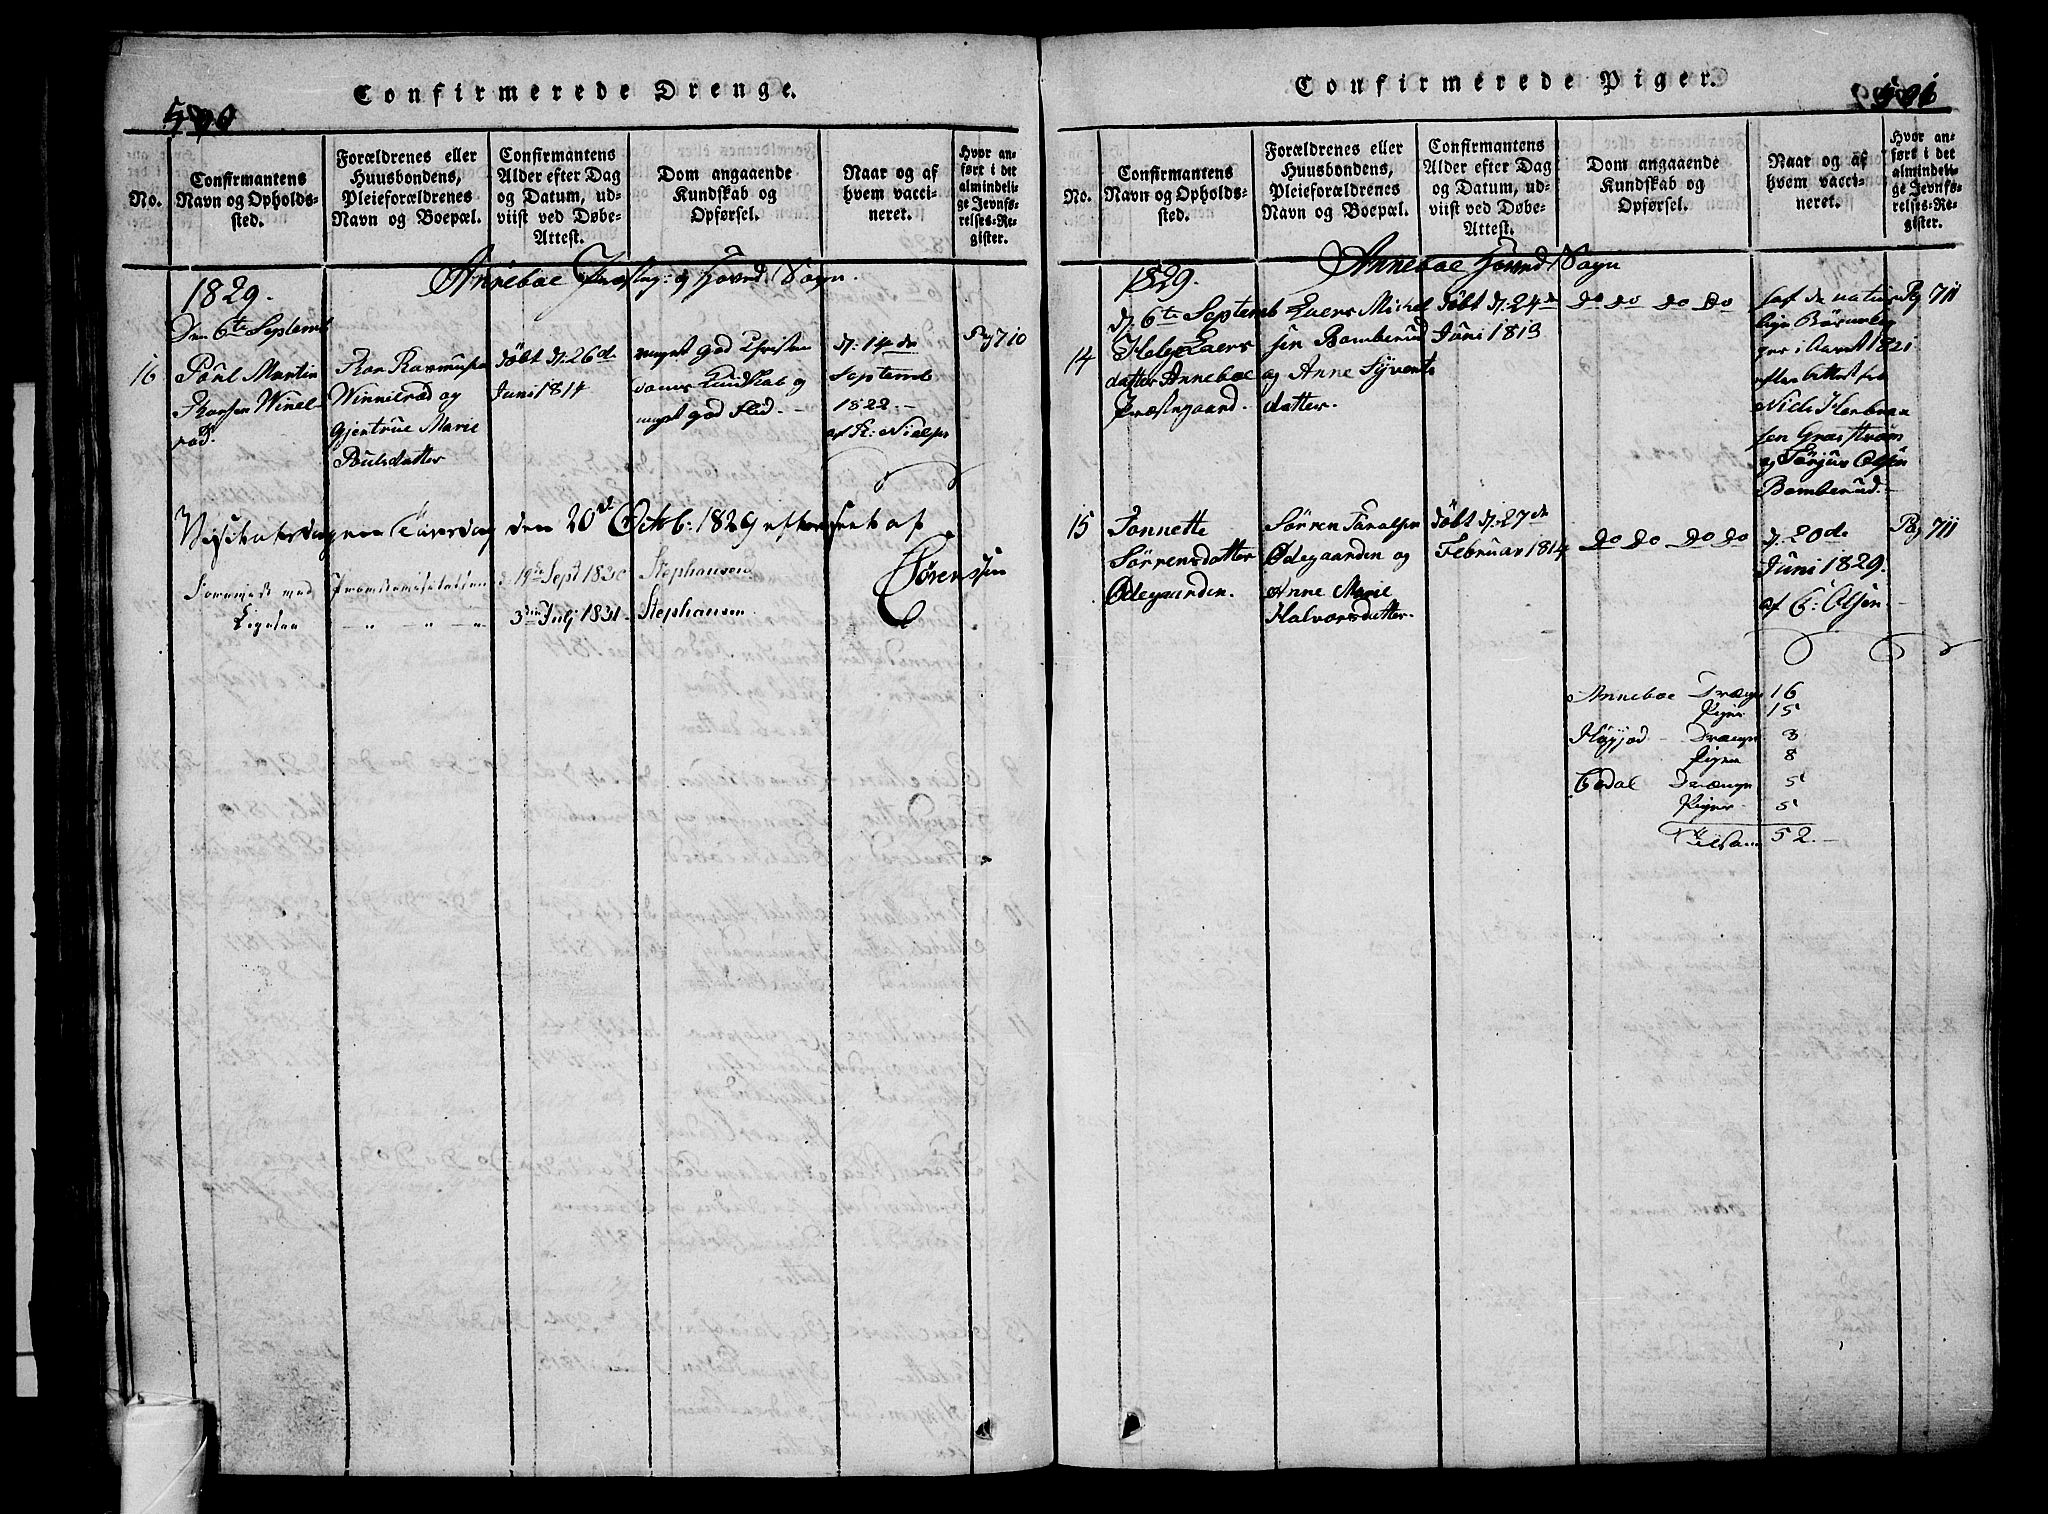 Confirmerede Drenge.
500
No.
Confirmantens
Navn og Opholds-
sted.
Forældrenes eller
Huusbondens,
Pleieforældrenes
Navn og Boepæl.
Confirmantens
Alder efter Dag
og Datum, ud-
viist ved Døbe-
Attest.
Dom angaaende
Kundskab og
Opførsel.
Naar og af
hvem vacci-
neret.
Hvor an-
ført i det
almindeli-
ge Jevnfø-
relses-Re-
gister.
Anneboe Præsteg: og Hoved Sogn.
1829.
Den 6te Septemb
16
Poul Martin
Winel-
rød.
Rasmusen
Winnelrød og
Gjertrue Marie
Poulsdatter
døbt d. 26de
Juni 1814
meget god Christen
doms Kundskab og
meget god Flid.
d: 14de
Septemb
1822.
af R: Nielsen
Pag 710
Tiirsdag den 20de Octb: 1829 efterseet af
Sørenssen
d. 19de Sept 1830
Stephansen
3die July 1831.
Stephansen.
Confirmerede Piger.
501
No.
Confirmantens
Navn og Opholds-
sted.
Forældrenes eller
Huusbondens,
Pleieforældrenes
Navn og Boepæl.
Confirmantens
Alder efter Dag
og Datum, ud-
viist ved Døbe-
Attest.
Dom angaaende
Kundskab og
Opførsel.
Naar og af
hvem vacci-
neret.
Hvor an-
ført i det
almindeli-
ge Jevnfø-
relses-Re-
gister.
Anneboe Hoved Sogn
1829.
d. 6te Septemb
14
Helge Laers
datter Anneboe
Præstegaard.
Laers Michel
sen Bomberud
og Anne Syvertz
datter.
døbt d. 24de
Juni 1813
do do do do
haf de natur
lige Børnekop
per i Aaret 1821
efter attest fra
Niels Herbran
sen Græsstrøm
og Torjus Olsen
Bomberud.
Pag 711
15
Tonnette
Sørrensdatter
Ødegaarden.
Sørren Taralsen
Ødegaarden og
Anne Marie
Halvorsdatter.
døbt d. 27de
Februar 1814
do do do do
d. 20de
Juni 1829.
af C: Olsen.
Pag 711
Anneboe Drænge 16
Piger 15
Høyjod Drænge 3
Piger 8
Drænge 5
Piger 5
Tilsam 52.